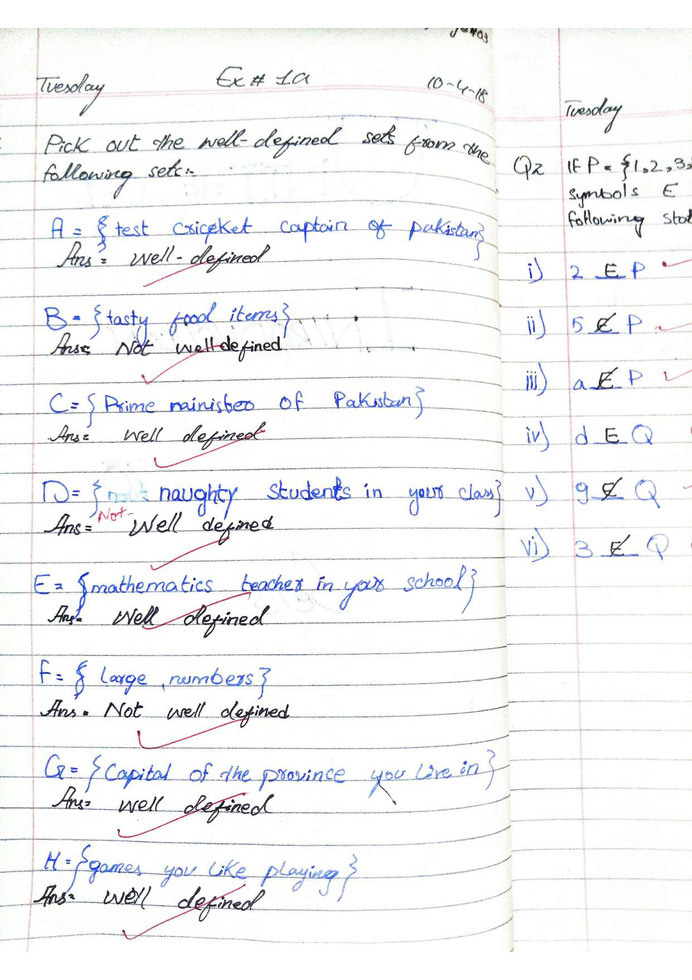 Tuesday Ex # 1a 10-4-18
Pick out the well-defined sets from the
following sets:-
A = { test cricket captain of pakistan}
Ans = well-defined
B = {tasty food items}
Ans = Not well defined
C = { Prime minister of Pakistan}
Ans = well defined
D = { naughty students in your class}
Ans = Not- Well defined
E = {mathematics teacher in your school}
Ans = Well defined
F = { large numbers}
Ans = Not well defined
G = {Capital of the province you live in}
Ans = well defined
H = {games you like playing}
Ans = well defined
Tuesday
Q2 IF P = {1,2,3,
symbols E
following
i) 2 E P
ii) 5 ∉ P
iii) a ∉ P
iv) d E Q
v) 9 ∉ Q
vi) 3 ∉ Q